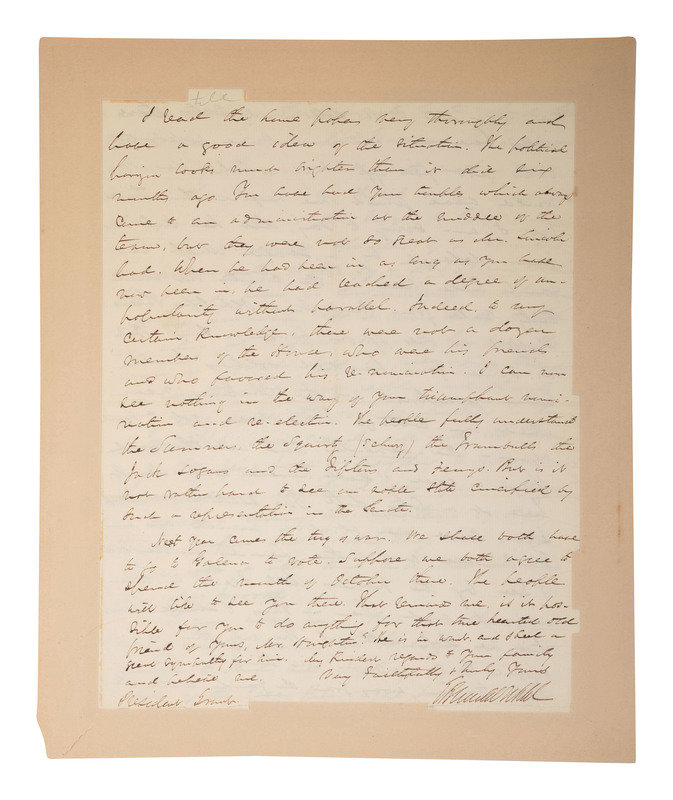 I read the home papers very thoroughly and
have a good idea of the situation. The political
horizon looks much brighter than it did six
months ago. You have had your troubles which always
come to an administration at the middle of the
term, but they were not so great as Mr. Lincoln
had. When he had been in as long as you have
now been in, he had reached a degree of un-
popularity without parallel. Indeed, to my
certain knowledge, there were not a dozen
members of the House, who were his friends
and who favored his re-nomination. I can now
see nothing in the way of your triumphant nomi-
nation and re-election. The people fully understand
the Sumners, the Squirt, (Schurz) the Trumbulls, the
Jack Logans and the Tiptons and Fentons. But is it
not rather hard to see our noble State crucified by
such a representation in the Senate.
Next year comes the tug of war. We shall both have
to go to Galena to vote. Suppose we both agree to
spend the month of October there. The people
will like to see you there. That reminds me, is it pos-
sible for you to do anything for that true hearted old
friend of yours, Mr. He is in want and I feel a
great sympathy for him. My kindest regards to your family
and believe me. Very faithfully & truly yours
President Grant.